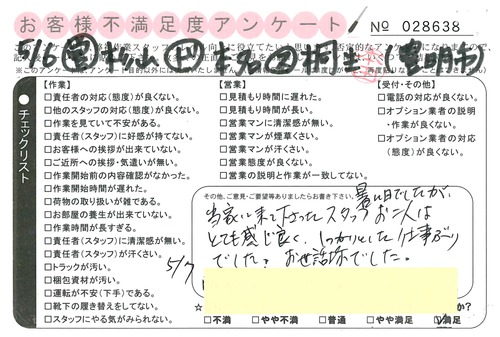 お客様不満足度アンケート
No 028638
5/6
チェックリスト
【作業】
□責任者の対応(態度)が良くない。
□他のスタッフの対応(態度)が良くない。
□作業を見ていて不安がある。
□責任者(スタッフ)に好感が持てない。
□お客様への挨拶が出来ていない。
□ご近所への挨拶・気遣いが無い。
□作業開始前の内容確認がなかった。
□作業開始時間が遅れた。
□荷物の取り扱いが雑である。
□お部屋の養生が出来ていない。
□作業時間が長すぎる。
□責任者(スタッフ)に清潔感が無い。
□責任者(スタッフ)が汗くさい。
□トラックが汚い。
□梱包資材が汚い。
□運転が不安(下手)である。
□靴下の履き替えをしてない。
□スタッフにやる気がみられない。
【営業】
□見積もり時間に遅れた。
□見積もり時間が長い。
□営業マンに清潔感が無い。
□営業マンが煙草くさい。
□営業マンが汗くさい。
□営業態度が良くない。
□営業の説明と作業が一致してない。
【受付・その他】
□電話の対応が良くない。
□オプション業者の説明
・作業が良くない。
□オプション業者の対応
(態度)が良くない。
その他、ご意見・ご要望等ありましたらお書き下さい。
暑い日でしたが、
当家に来て下さったスタッフお二人は
とても感じ良く、しっかりとした仕事ぶり
でした。お世話様でした。
5/7
か?
□不満 □やや不満 □普通 □やや満足 □満足